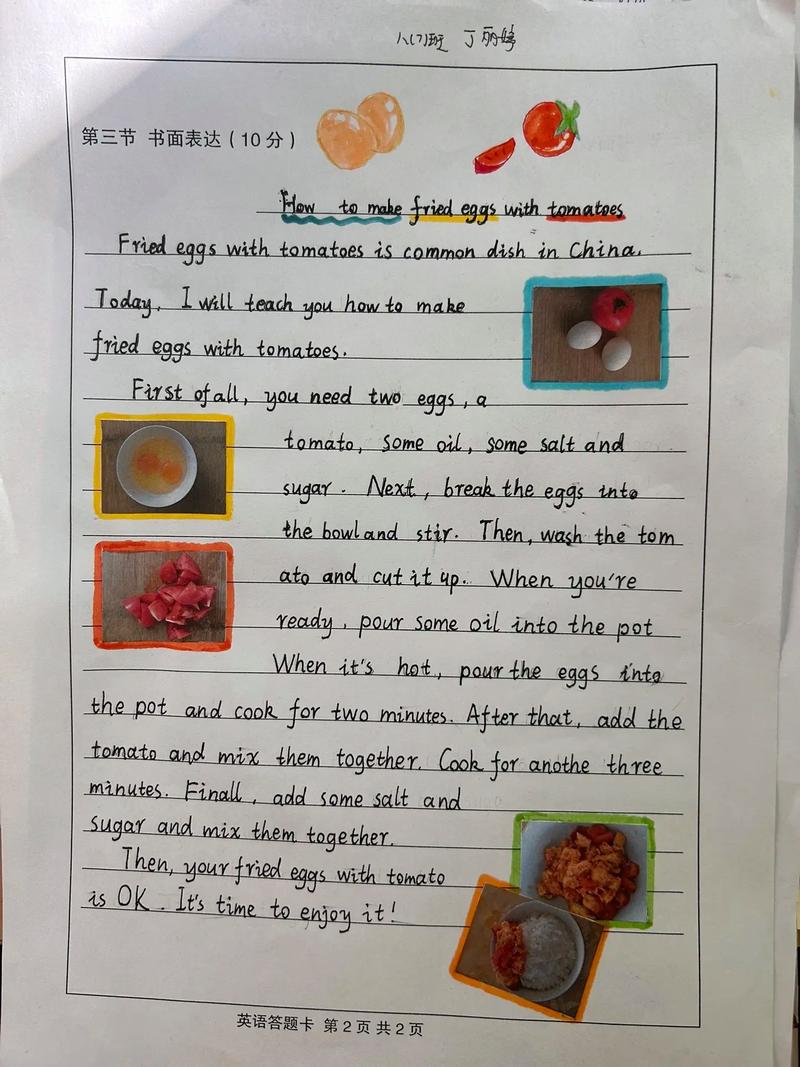 八(7)班 丁丽婷
第三节 书面表达(10分)
How to make fried eggs with tomatoes
Fried eggs with tomatoes is common dish in China.
Today, I will teach you how to make
fried eggs with tomatoes.
First of all, you need two eggs, a
tomato, some oil, some salt and
sugar. Next, break the eggs into
the bowl and stir. Then, wash the tom
ato and cut it up. When you're
ready, pour some oil into the pot
When it's hot, pour the eggs into
the pot and cook for two minutes. After that, add the
tomato and mix them together. Cook for anothe three
minutes. Finall, add some salt and
sugar and mix them together.
Then, your fried eggs with tomato
is OK. It's time to enjoy it!
英语答题卡 第2页共2页